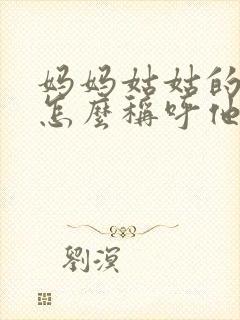 妈妈姑姑的
怎麼稱呼他
劉溟